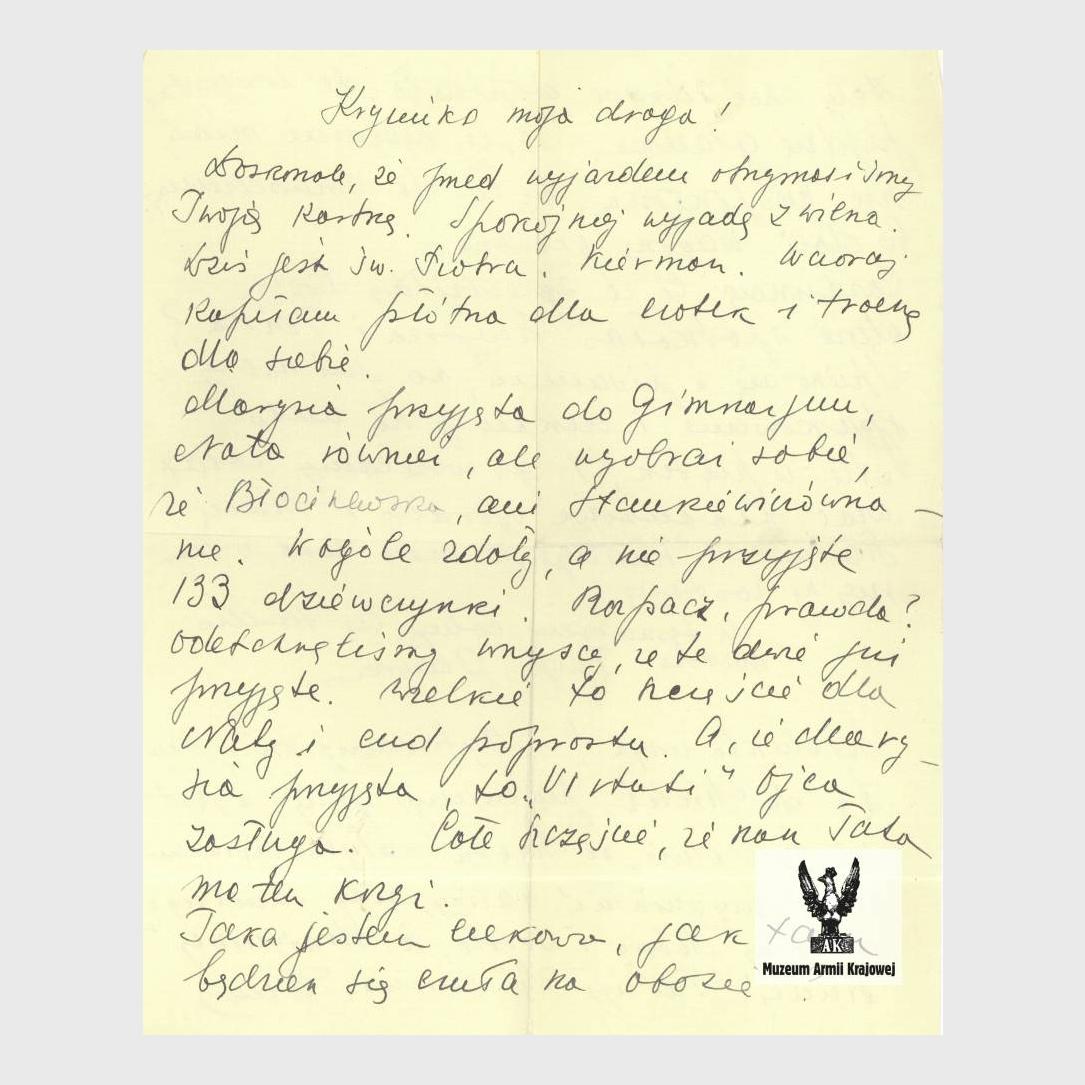 Krysieńko moja droga!
Doskonale, że przed wyjazdem otrzymaliśmy
Twoją kartkę. Spokojniej wyjadę z Wilna.
Dziś jest św. Piotra. Kiermasz. Wczoraj
kupiłam płótna dla ciotek i trochę
dla siebie.
Marysia przyjęta do Gimnazjum,
Nata również, ale wyobraź sobie,
że Błocińkowska, ani Stankiewiczówna –
nie. W ogóle zdały, a nie przyjęte
133 dziewczynki. Rozpacz, prawda?
Odetchnęliśmy wszyscy, że te dwie już
przyjęte. Wielkie to szczęście dla
Naty i cud poprostu. A, że Mary–
sia przyjęta, to „Virtuti” Ojca
zasługa. Całe szczęście, że nasz Tata
ma ten krzyż.
Taka jestem ciekawa, jak tam
będziesz się czuła na obozie
AK
Muzeum Armii Krajowej